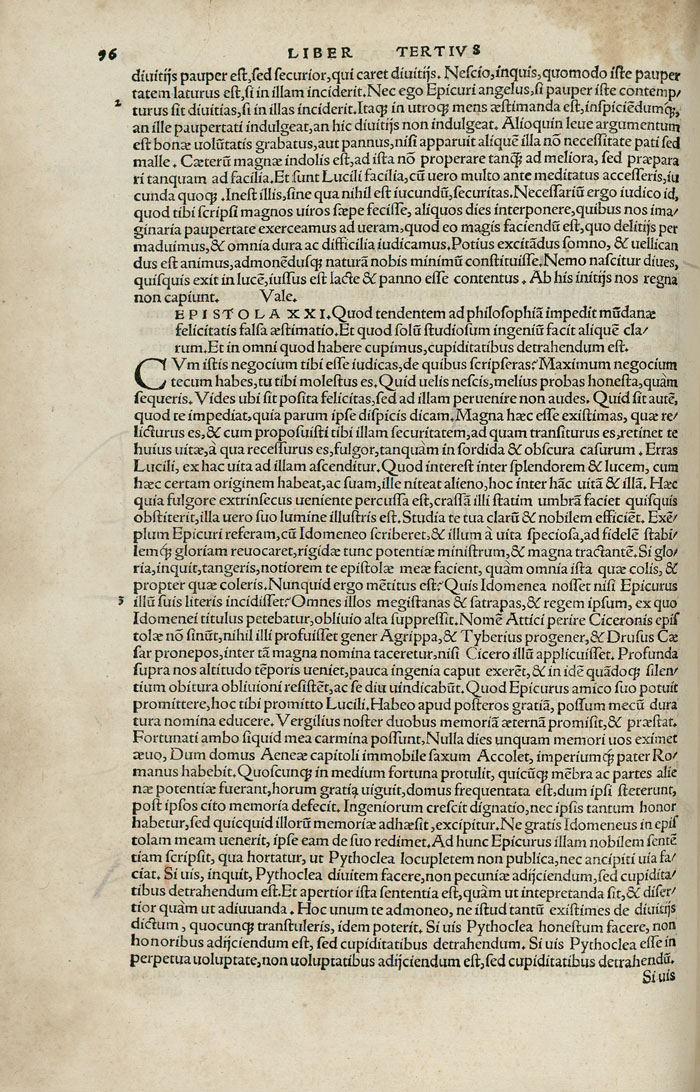 96 LIBER TERTIVS
diuitijs pauper est, sed securior, qui caret diuitijs. Nescio, inquis, quomodo iste pauper
tatem laturus est, si in illam inciderit. Nec ego Epicuri angelus, si pauper iste contemp/
2 turus sit diuitias, si in illas inciderit. Itaq; in utroq; mens æstimanda est, inspiciēdumq;,
an ille paupertati indulgeat, an hic diuitijs non indulgeat. Alioquin leue argumentum
est bonæ uolūtatis grabatus, aut pannus, nisi apparuit aliquē illa nō necessitate pati sed
malle. Cæterū magnæ indolis est, ad ista nō properare tanq; ad meliora, sed præpara
ri tanquam ad facilia. Et sunt Lucili facilia, cū uero multo ante meditatus accesseris, iu
cunda quoq;. Inest illis, sine qua nihil est iucundū, securitas. Necessariū ergo iudico id,
quod tibi scripsi magnos uiros sæpe fecisse, aliquos dies interponere, quibus nos ima/
ginaria paupertate exerceamus ad ueram, quod eo magis faciendū est, quo delitijs per
maduimus, & omnia dura ac difficilia iudicamus. Potius excitādus somno, & uellican
dus est animus, admonēdusq; naturā nobis minimū constituisse. Nemo nascitur diues,
quisquis exit in lucē, iussus est lacte & panno esse contentus. Ab his initijs nos regna
non capiunt. Vale.
EPISTOLA XXI. Quod tendentem ad philosophiā impedit mūdanæ
felicitatis falsa æstimatio. Et quod solū studiosum ingeniū facit aliquē cla/
rum. Et in omni quod habere cupimus, cupiditatibus detrahendum est.
CVm istis negocium tibi esse iudicas, de quibus scripseras? Maximum negocium
tecum habes, tu tibi molestus es. Quid uelis nescis, melius probas honesta, quàm
sequeris. Vides ubi sit posita felicitas, sed ad illam peruenire non audes. Quid sit autē,
quod te impediat, quia parum ipse dispicis dicam. Magna hæc esse existimas, quæ re/
licturus es, & cum proposuisti tibi illam securitatem, ad quam transiturus es, retinet te
huius uitæ, à qua recessurus es, fulgor, tanquàm in sordida & obscura casurum. Erras
Lucili, ex hac uita ad illam ascenditur. Quod interest inter splendorem & lucem, cum
hæc certam originem habeat, ac suam, ille niteat alieno, hoc inter hāc uitā & illā. Hæc
quia fulgore extrinsecus ueniente percussa est, crassā illi statim umbrā faciet quisquis
obstiterit, illa uero suo lumine illustris est. Studia te tua clarū & nobilem efficiēt. Exē/
plum Epicuri referam, cū Idomeneo scriberet, & illum à uita speciosa, ad fidelē stabi/
lemq; gloriam reuocaret, rigidæ tunc potentiæ ministrum, & magna tractantē. Si glo/
ria, inquit, tangeris, notiorem te epistolæ meæ facient, quàm omnia ista quæ colis, &
propter quæ coleris. Nunquid ergo mētitus est? Quis Idomenea nosset nisi Epicurus
3 illū suis literis incidisset? Omnes illos megistanas & satrapas, & regem ipsum, ex quo
Idomenei titulus petebatur, obliuio alta suppressit. Nomē Attici perire Ciceronis epis
tolæ nō sinūt, nihil illi profuisset gener Agrippa, & Tyberius progener, & Drusus Cæ
sar pronepos, inter tā magna nomina taceretur, nisi Cicero illū applicuisset. Profunda
supra nos altitudo tēporis ueniet, pauca ingenia caput exerēt, & in idē quādoq; silen/
tium obitura obliuioni resistēt, ac se diu uindicabūt. Quod Epicurus amico suo potuit
promittere, hoc tibi promitto Lucili. Habeo apud posteros gratiā, possum mecū dura
tura nomina educere. Vergilius noster duobus memoriā æternā promisit, & præstat.
Fortunati ambo siquid mea carmina possunt, Nulla dies unquam memori uos eximet
æuo, Dum domus Aeneæ capitoli immobile saxum Accolet, imperiumq; pater Ro/
manus habebit. Quoscunq; in medium fortuna protulit, quicūq; mēbra ac partes alie
næ potentiæ fuerant, horum gratia uiguit, domus frequentata est, dum ipsi steterunt,
post ipsos cito memoria defecit. Ingeniorum crescit dignatio, nec ipsis tantum honor
habetur, sed quicquid illorū memoriæ adhæsit, excipitur. Ne gratis Idomeneus in epis
tolam meam uenerit, ipse eam de suo redimet. Ad hunc Epicurus illam nobilem sentē
tiam scripsit, qua hortatur, ut Pythoclea locupletem non publica, nec ancipiti uia fa/
ciat. Si uis, inquit, Pythoclea diuitem facere, non pecuniæ adijciendum, sed cupidita/
tibus detrahendum est. Et apertior ista sententia est, quàm ut intepretanda sit, & diser/
tior quàm ut adiuuanda. Hoc unum te admoneo, ne istud tantū existimes de diuitijs
dictum, quocunq; transtuleris, idem poterit. Si uis Pythoclea honestum facere, non
honoribus adijciendum est, sed cupiditatibus detrahendum. Si uis Pythoclea esse in
perpetua uoluptate, non uoluptatibus adijciendum est, sed cupiditatibus detrahendū.
Si uis